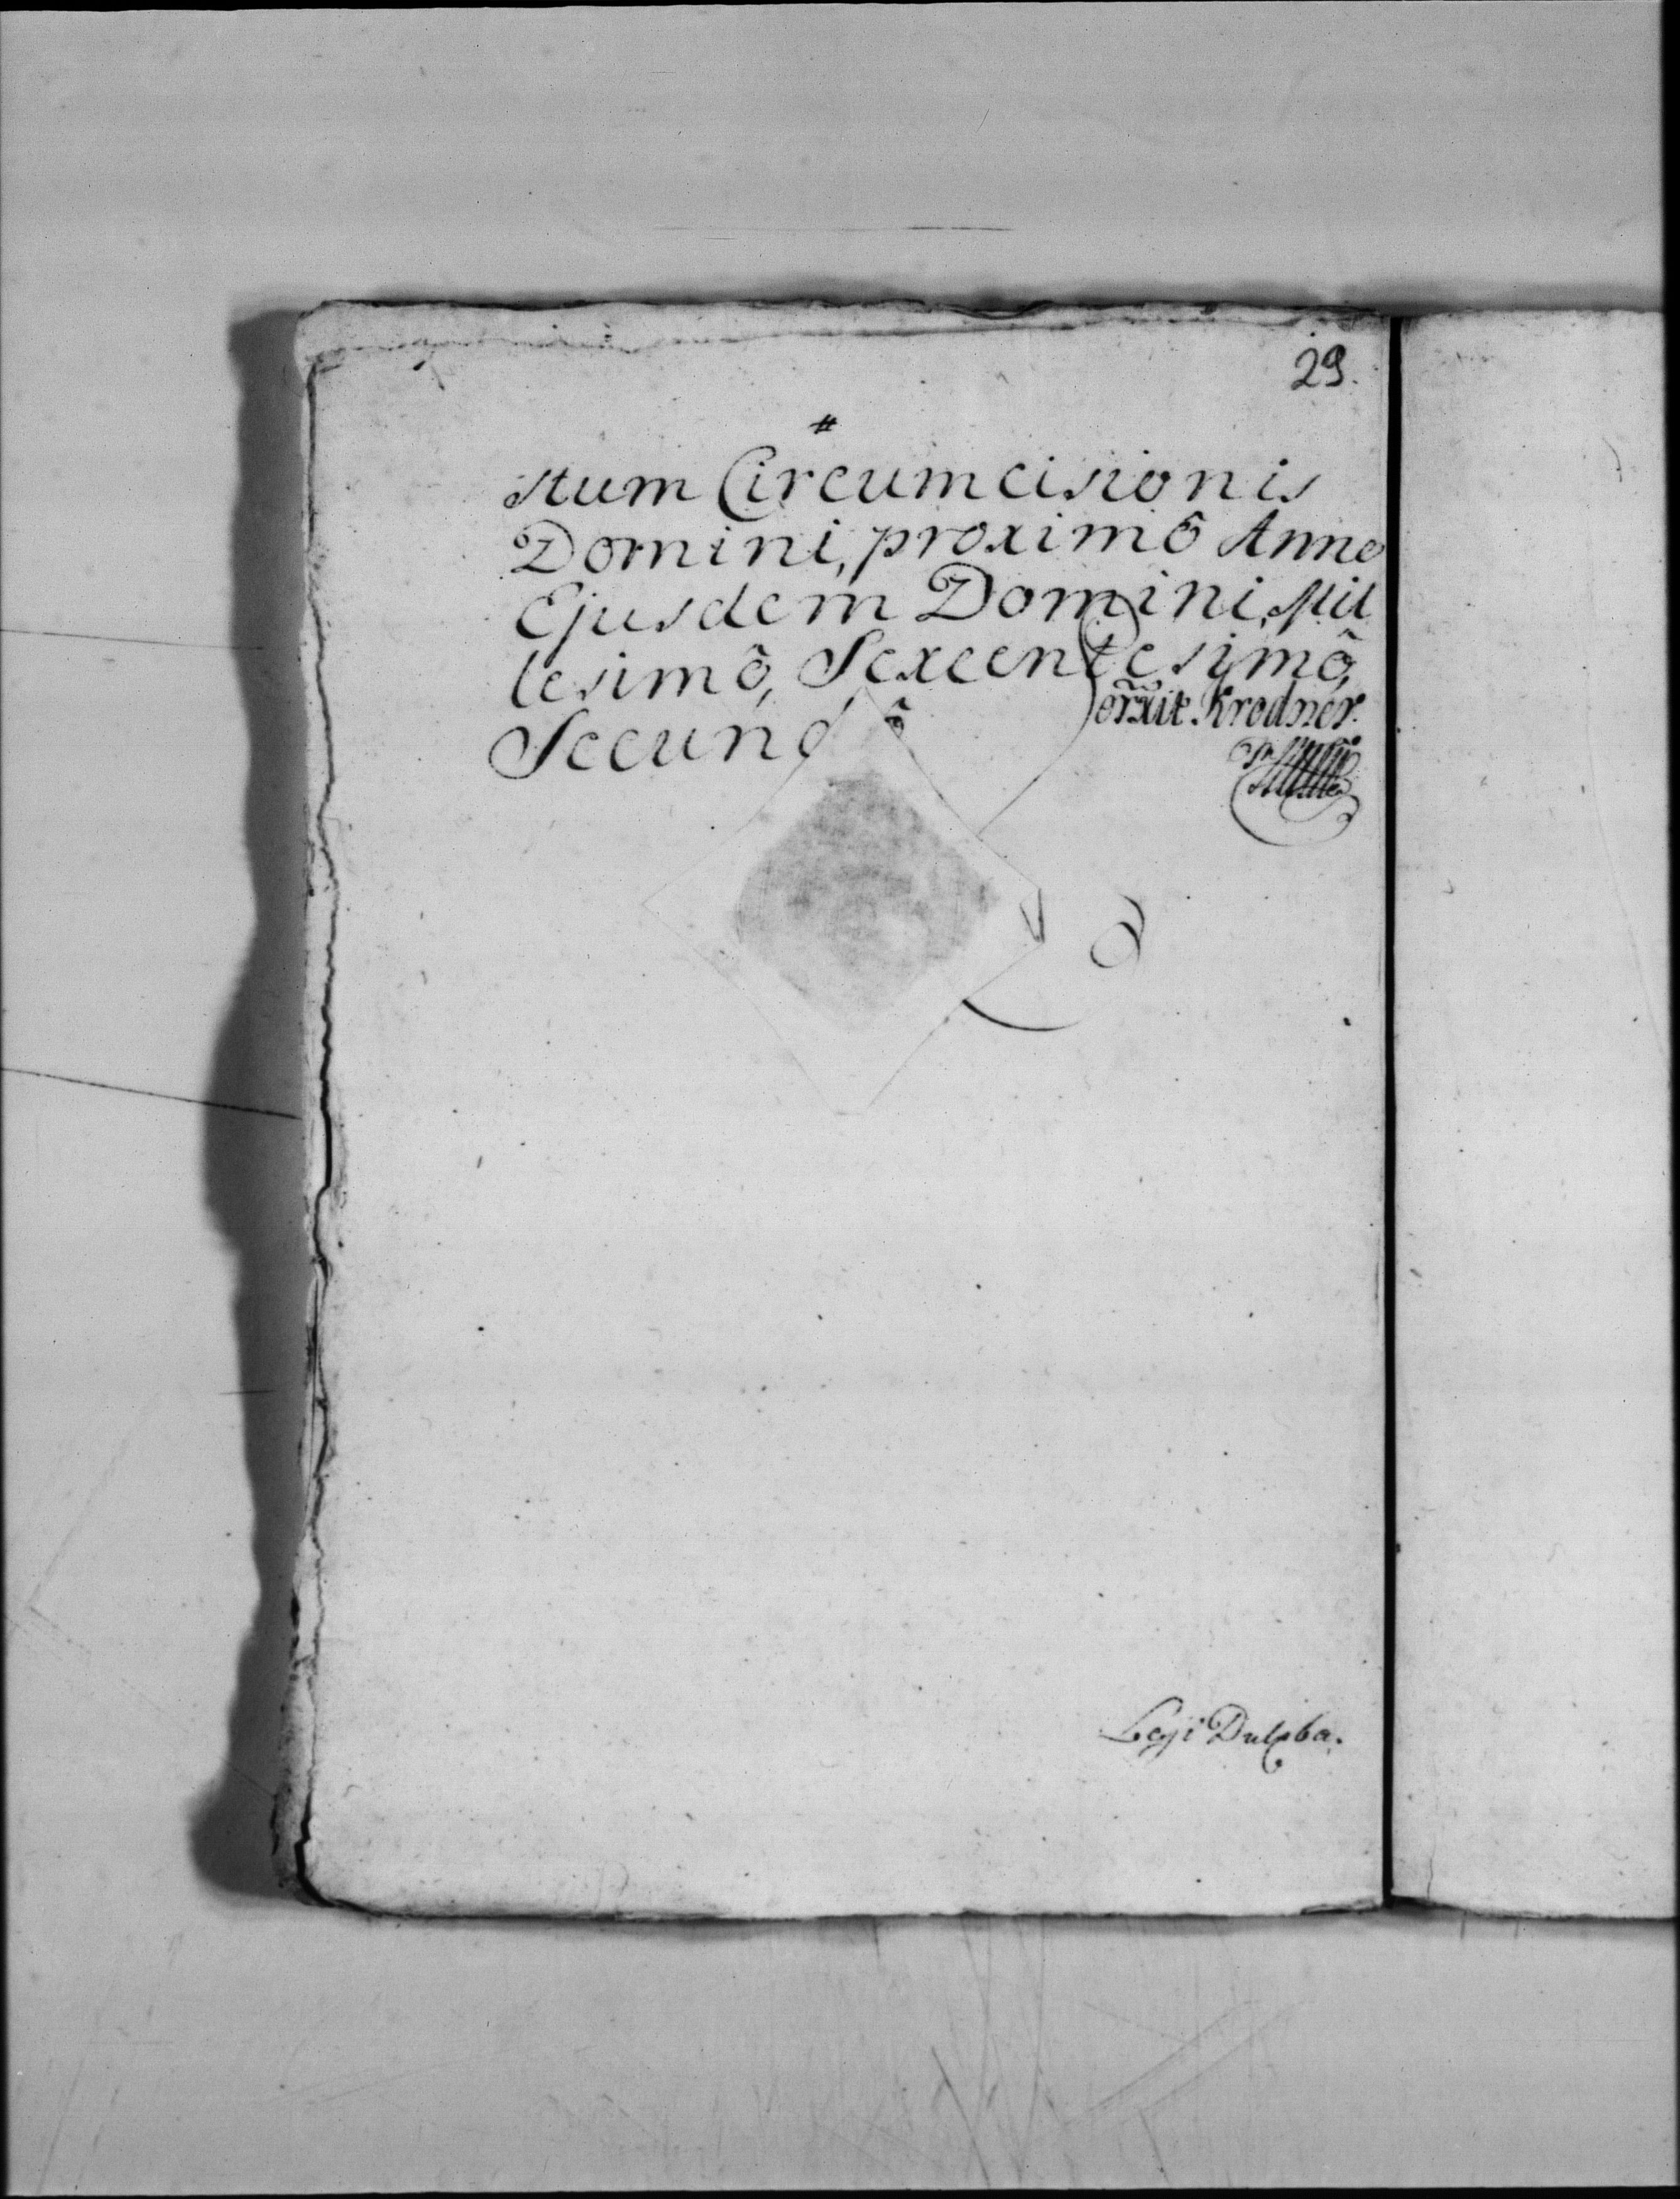 29.
stum Circumcisionis
Domini, proximô Anno
Ejusdem Domini, Mil
lesimô, Sexcentesimô,
Secundô
Corr̃xit Krodner.
Legi Dulęba.